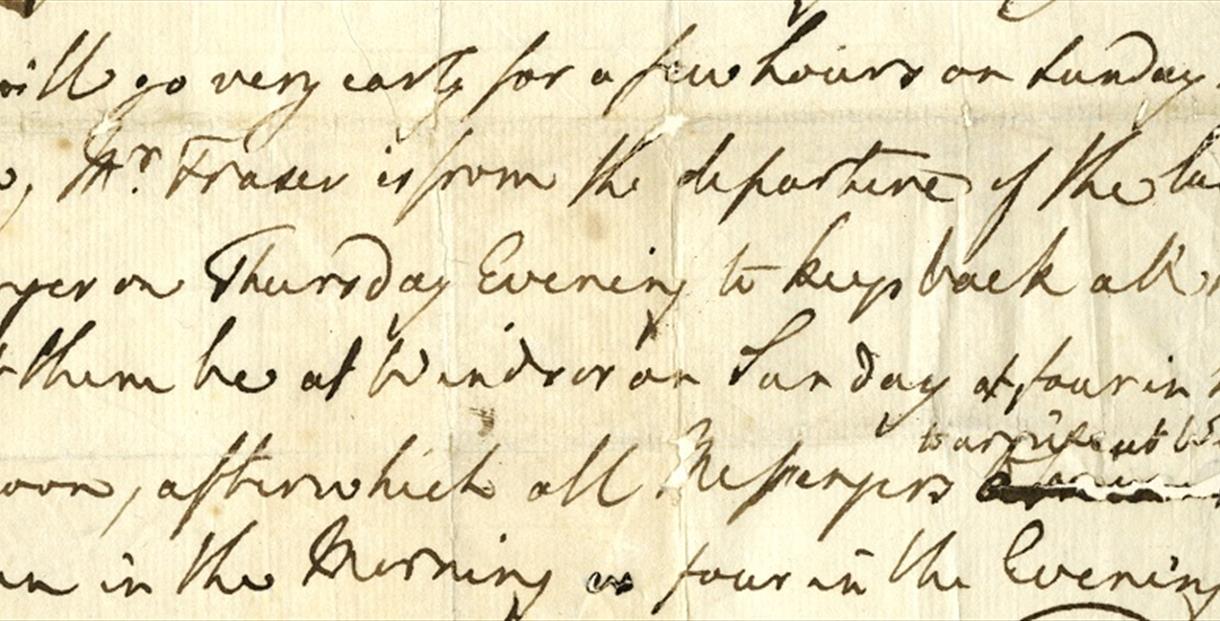 will go very early for a few hours on Sunday
Mr. Fraser is from the departure of the
on Thursday Evening to keep back all
them be at Windsor on Sunday at four in
to arrive at
noon, after which all Messengers
in the Morning or four in the Evening